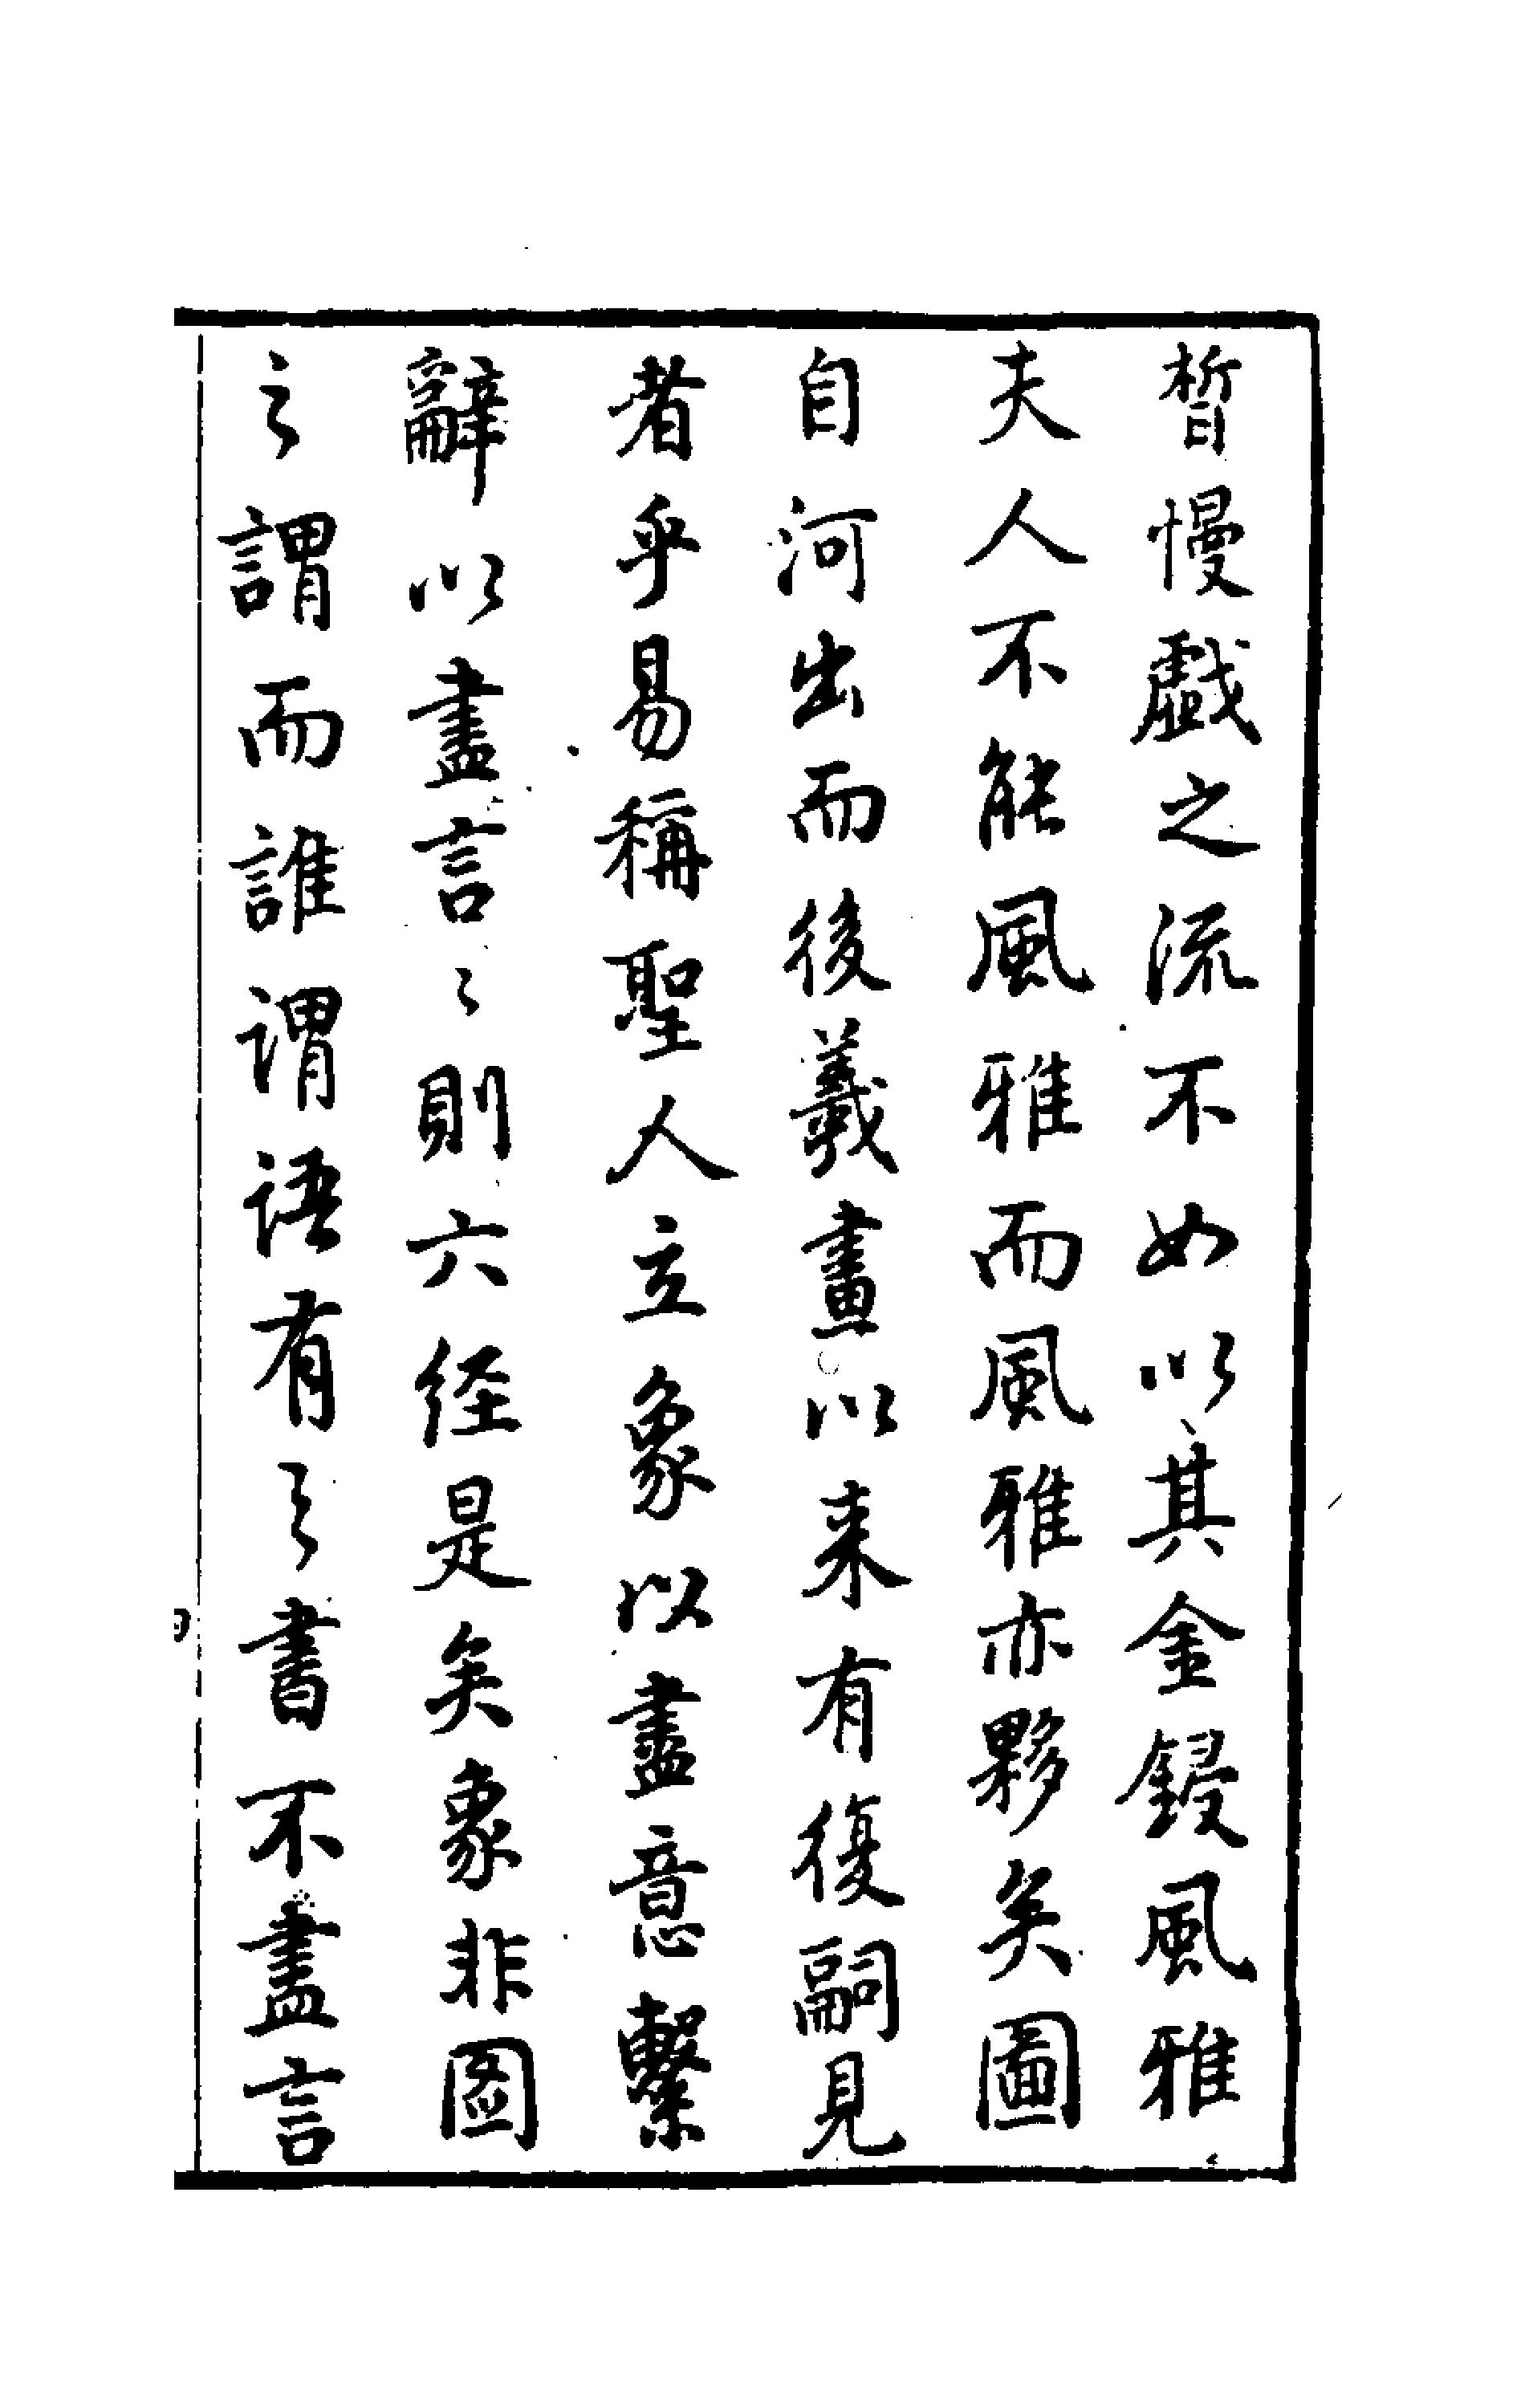 晳慢戱之流不如以其金鋟風雅
夫人不能風雅而風雅亦夥矣圖
自河出而後羲畫以来有復嗣見
者乎易稱聖人立象以盡意繫
辭以盡言〻則六经是矣象非圖
之謂而誰謂語有之書不盡言